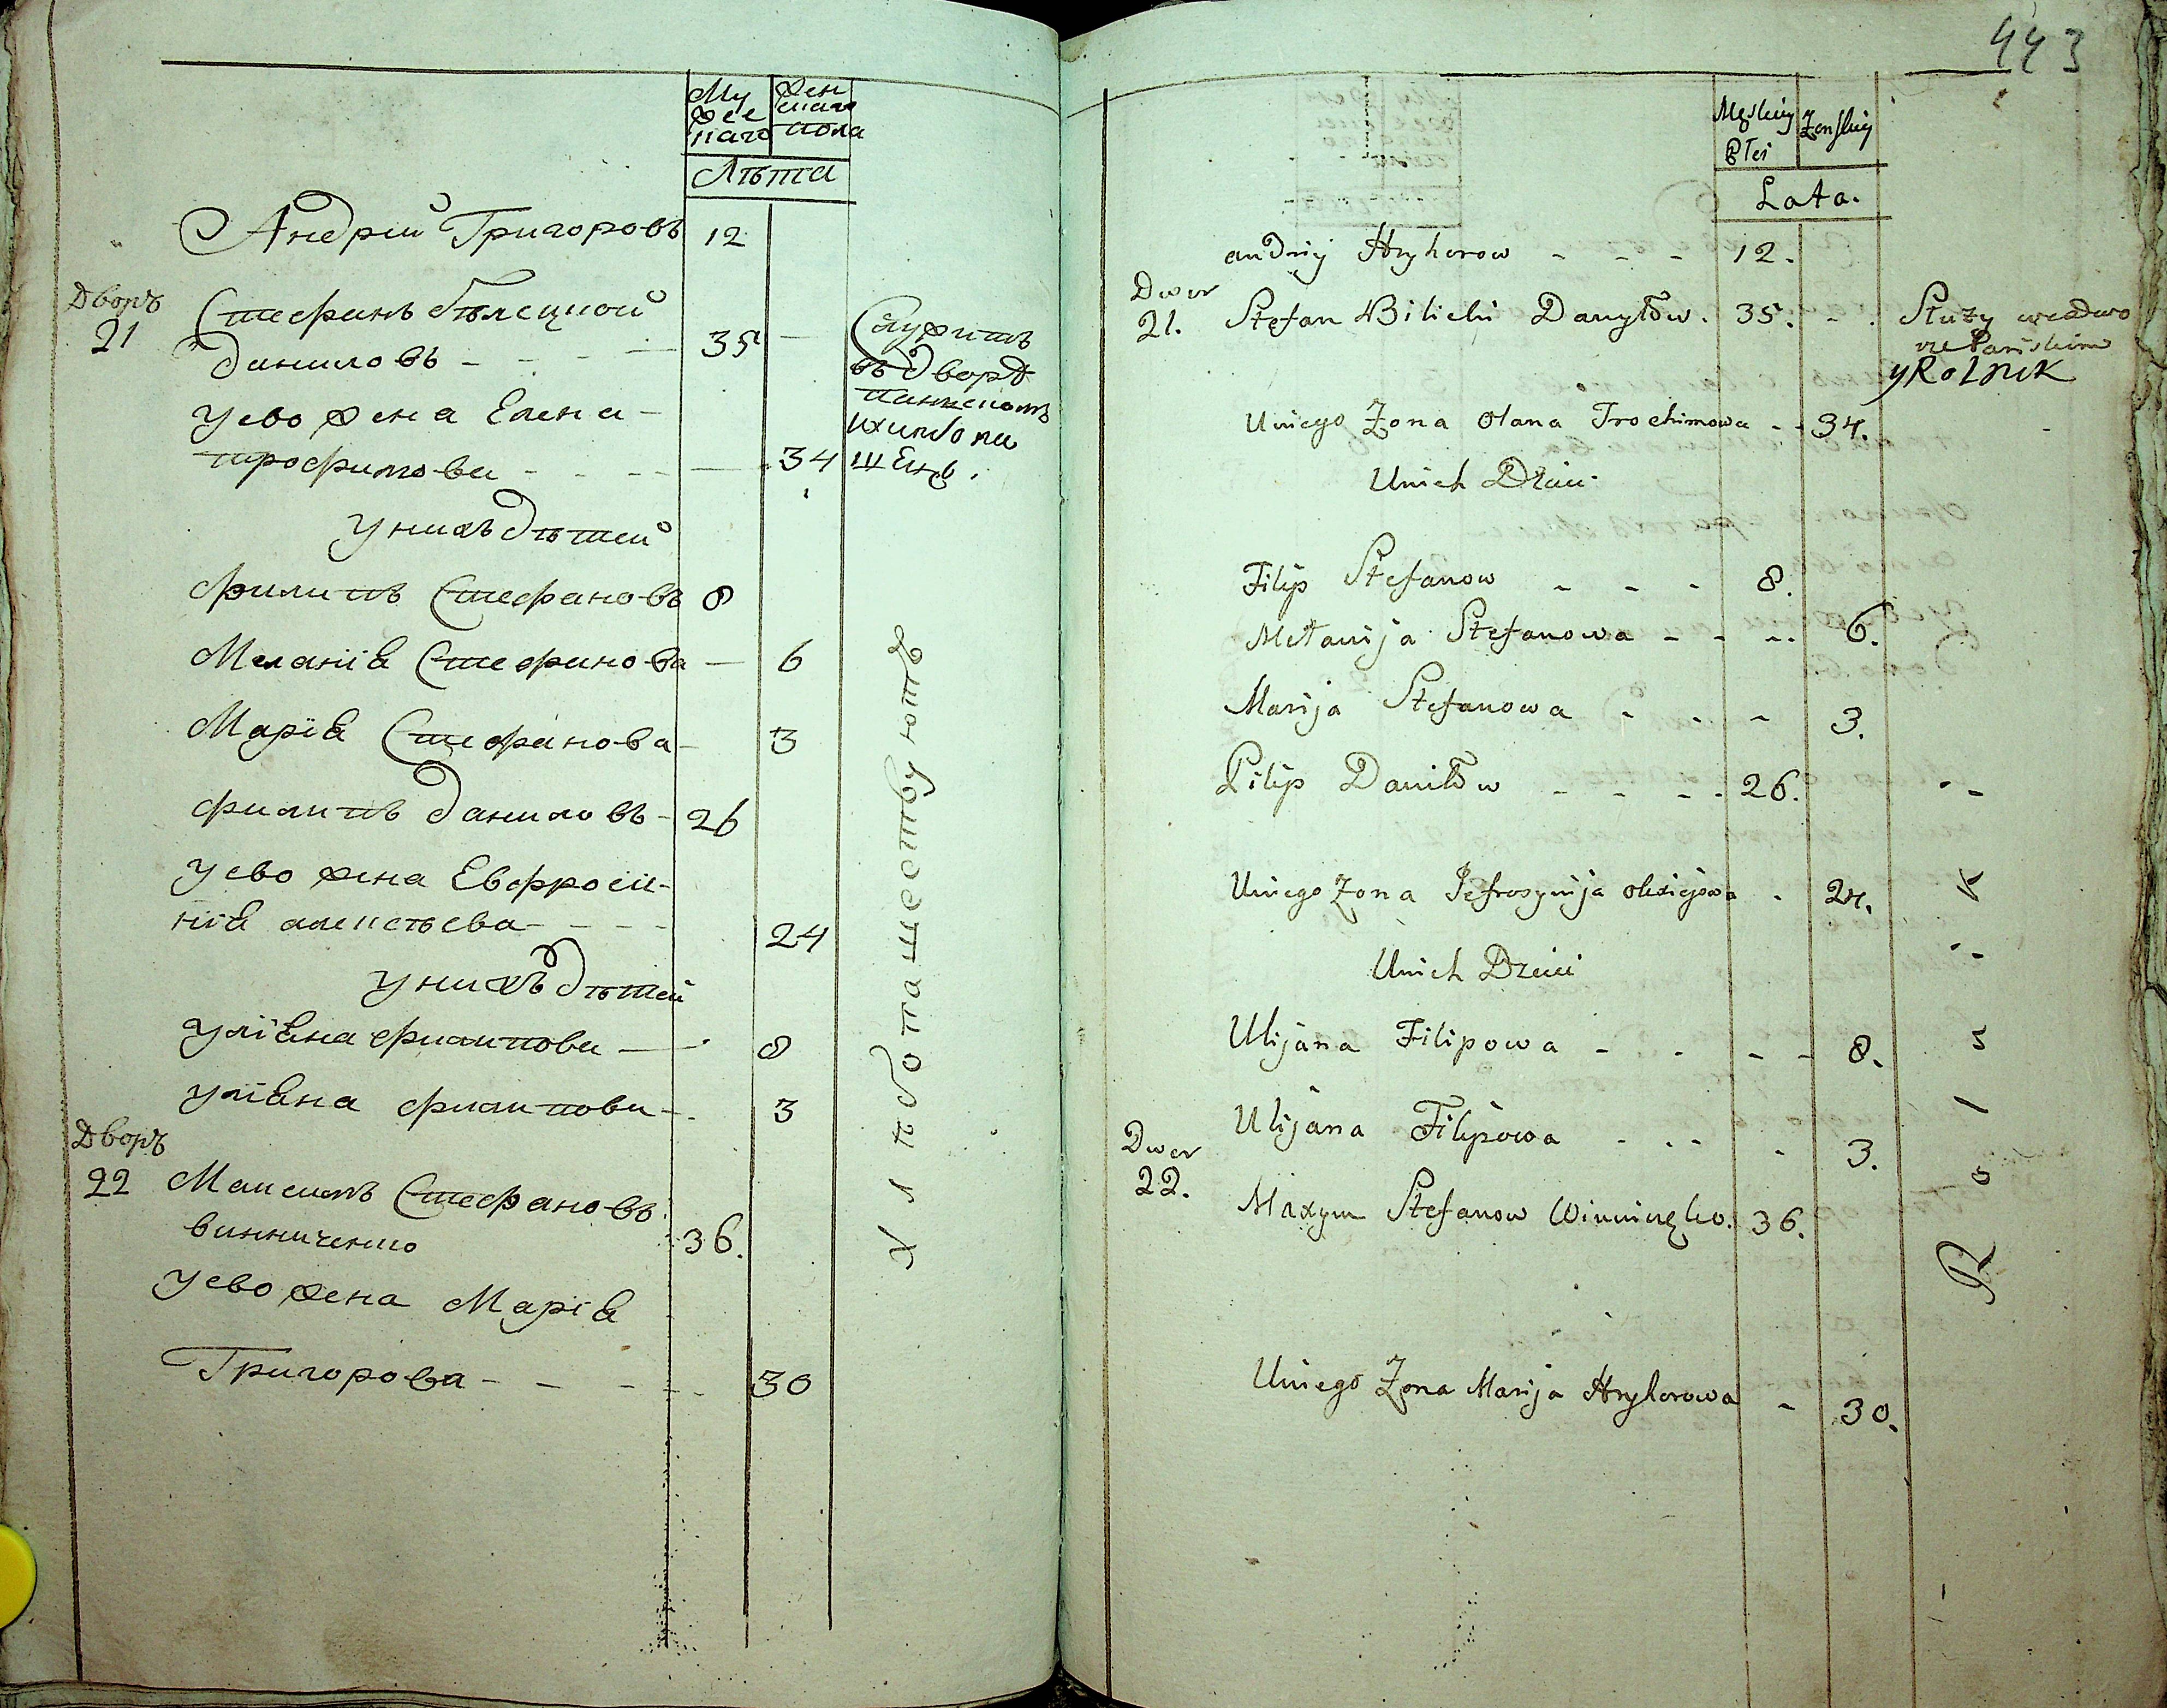 Му
жес
каго
Жен
скаго
пола
Лѣта
Андрій Григоровъ 12
Дворъ
21
Стефанъ бѣлецкой
даниловъ - - - - 35 -
Служитъ
въ дворѣ
панскомъ
ихлѣбопа
шецъ.
уево жена Елена -
трофимова - - - - 34
унихъ дѣтей
филипъ Стефановъ 8
Меланія Стефанова - 6
Марія Стефанова - 3
филипъ даниловъ - 26
уево жена Евфросіи-
нія алексѣева - - - - 24
унихъ дѣтей
уліяна филипова - 8
уліяна филипова - 3
Хлѣбопашествуютъ
Дворъ
22
Максимъ Стефановъ
винниченко 36.
уево жена Марія
Григорова - - - - 30
443
Męskiey
Płci
Żeńskiey
Lata.
andriy Hryhorow - - - 12.
Dwor
21. Stefan Bilicki Danyłów. 35. - .
Służy wedwo
rze Pańskim
y Rolnik
Uniego Żona Olana Trochimowa - - 34.
Unich Dzieci
Filip Stefanow - - - 8.
Mełanija Stefanowa - - - 6.
Marija Stefanowa - - - 3.
Pilip Daniłow - - - - 26.
Uniego Żona Jefrosynija olexiejowa - 24.
Unich Dzieci
Ulijana Filipowa - - - - 8.
Ulijana Filipowa - - - - 3.
Dwor
22.
Maxym Stefanow Winniczko. 36.
Uniego Żona Marija Hryhorowa - 30.